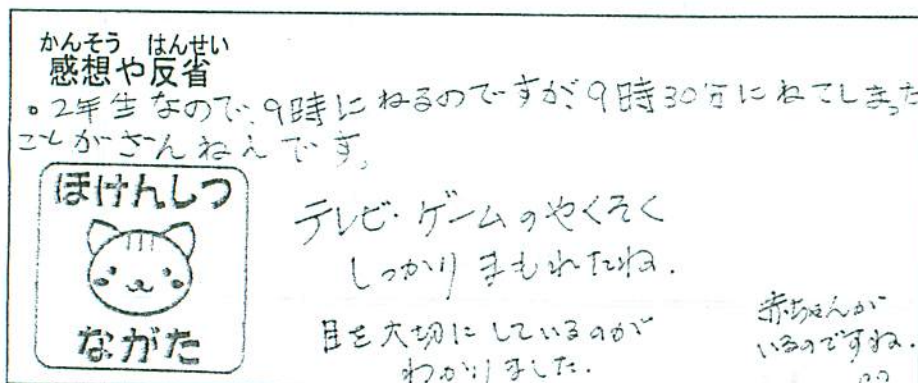 かんそう はんせい
感想や反省
。2年生なので、9時にねるのですが、9時30分にねてしまった
ことがざんねんです。
ほけんしつ
ながた
テレビ・ゲームのやくそく
しっかりまもれたね.
目を大切にしているのが
わかりました.
赤ちゃんが
いるのですね.